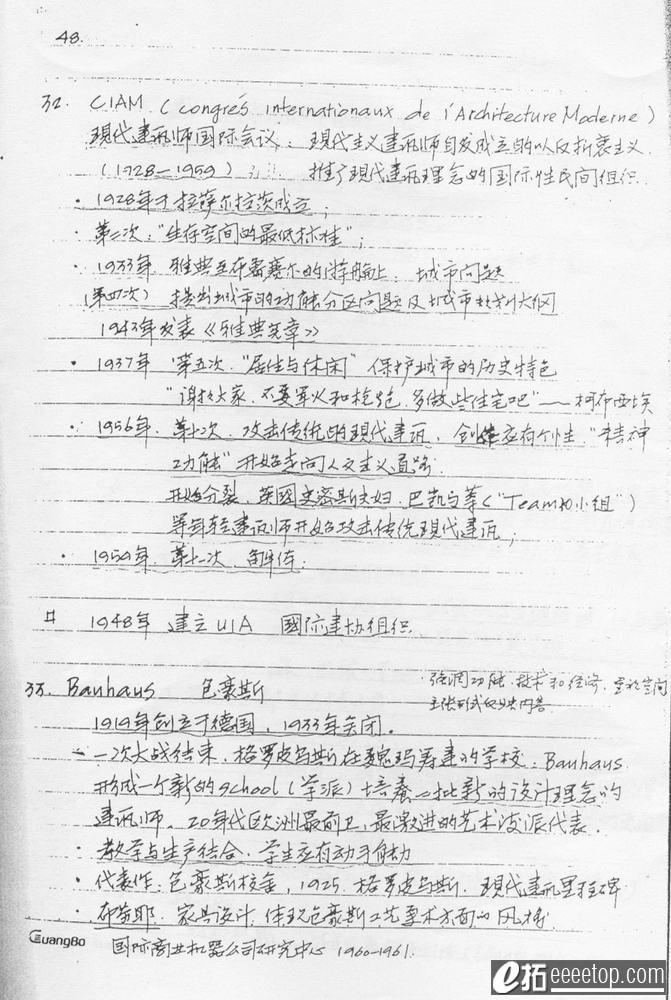 48.
32. CIAM (congrés internationaux de l'Architecture Moderne)
现代建筑师国际会议：现代主义建筑师自发成立的以反折衷主义
(1928—1959) 推广现代建筑理念的国际性民间组织
· 1928年于拉萨尔拉茨成立；
· 第二次："生存空间的最低标准"；
· 1933年 雅典至布雷赛尔的游船上. 城市问题
(第四次) 提出城市的功能分区问题及城市规划大纲
1943年发表《雅典宪章》
· 1937年 第五次."居住与休闲" 保护城市的历史特色
"谢谢大家,不要军火和枪炮,多做些住宅吧" —— 柯布西埃
· 1956年. 第十次. 攻击传统的现代建筑, 创作应有个性."精神
功能" 开始走向人文主义道路.
开始分裂. 英国史密斯夫妇. 巴凯马等("Team10小组")
等年轻建筑师开始攻击传统现代建筑；
· 1959年. 第十一次. 解体.
# 1948年 建立UIA 国际建协组织.
33. Bauhaus 包豪斯
· 强调功能、技术和经济、重视空间
主张形式
1919年创立于德国, 1933年关闭.
一次大战结束, 格罗皮乌斯在魏玛筹建的学校: Bauhaus
形成一个新的school (学派) 培养一批新的设计理念的
建筑师. 20年代欧洲最前卫、最激进的艺术流派代表.
· 教学与生产结合. 学生应有动手能力
· 代表作: 包豪斯校舍, 1925. 格罗皮乌斯. 现代建筑里程碑
· 布劳耶. 家具设计. 体现包豪斯工艺美术方面的风格.
国际商业机器公司研究中心 1960-1961.
GuangBo
e拓 eeeetop.com